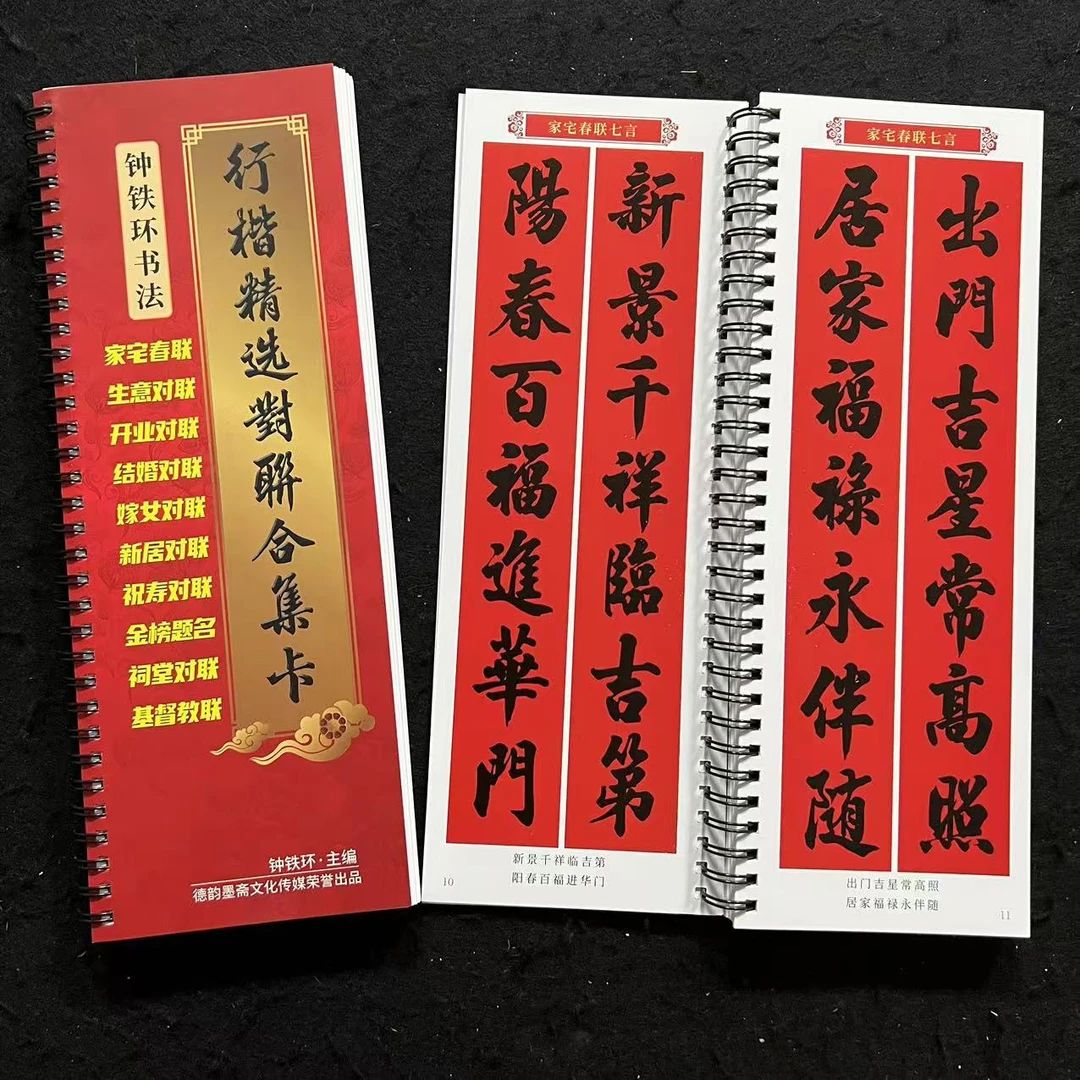 钟铁环书法
行楷精选對聯合集卡
家宅春联
生意对联
开业对联
结婚对联
嫁女对联
新居对联
祝寿对联
金榜题名
祠堂对联
基督教联
钟铁环·主编
德韵墨斋文化传媒荣誉出品
家宅春联七言
新景千祥臨吉第
陽春百福進華門
新景千祥临吉第
阳春百福进华门
10
家宅春联七言
出門吉星常高照
居家福禄永伴随
出门吉星常高照
居家福禄永伴随
11